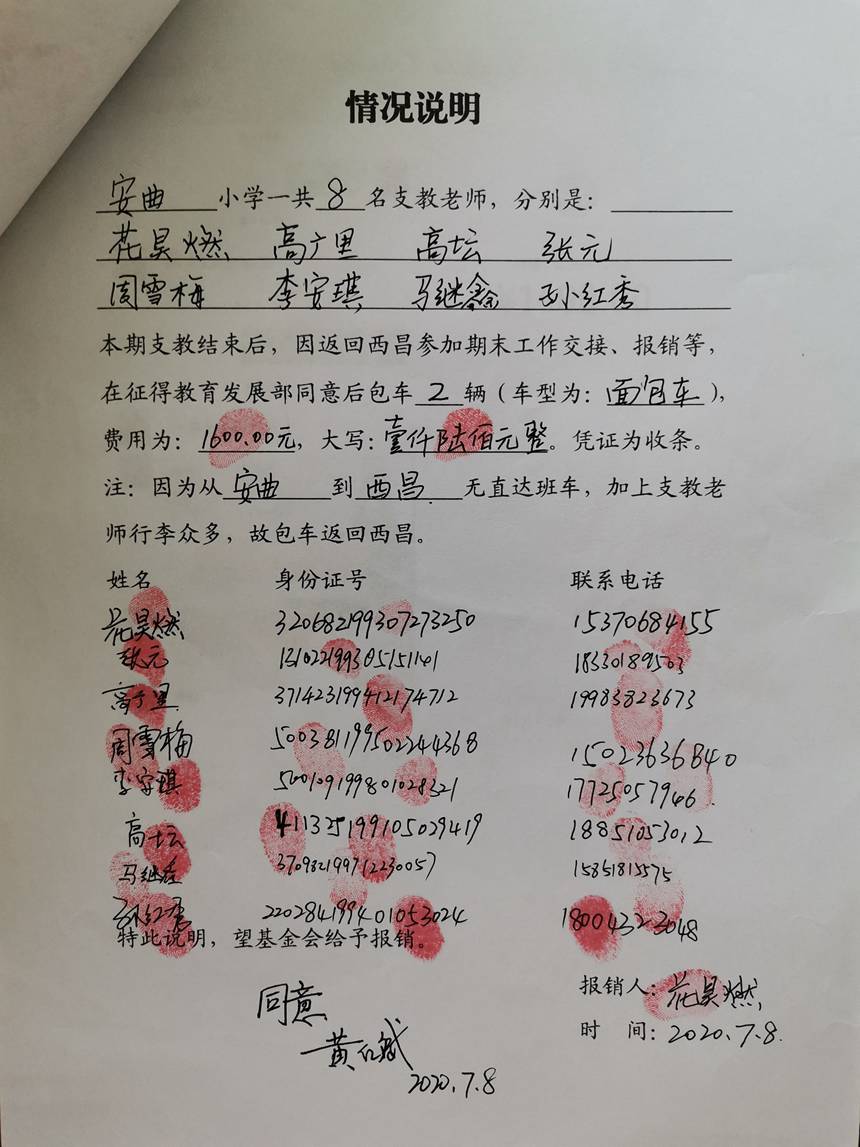 情况说明
安曲 小学一共 8 名支教老师，分别是：
花昊燃 高广里 高坛 张元
周雪梅 李安琪 马继鑫 孙红秀
本期支教结束后，因返回西昌参加期末工作交接、报销等，
在征得教育发展部同意后包车 2 辆（车型为：面包车），
费用为：1600.00元，大写：壹仟陆佰元整。凭证为收条。
注：因为从 安曲 到 西昌 无直达班车，加上支教老
师行李众多，故包车返回西昌。
姓名 身份证号 联系电话
花昊燃 320682199307273250 15370684155
张元 131022199305151141 18330189503
高广里 371423199412174712 19983823673
周雪梅 500381199502244368 15023636840
李安琪 500109199801028321 17725057966
高坛 411325199105029419 18851053012
马继鑫 370982199712230057 15851815575
孙红秀 220284199401053024 18004323048
特此说明，望基金会给予报销。
报销人：花昊燃
同意
时 间：2020.7.8.
2020.7.8